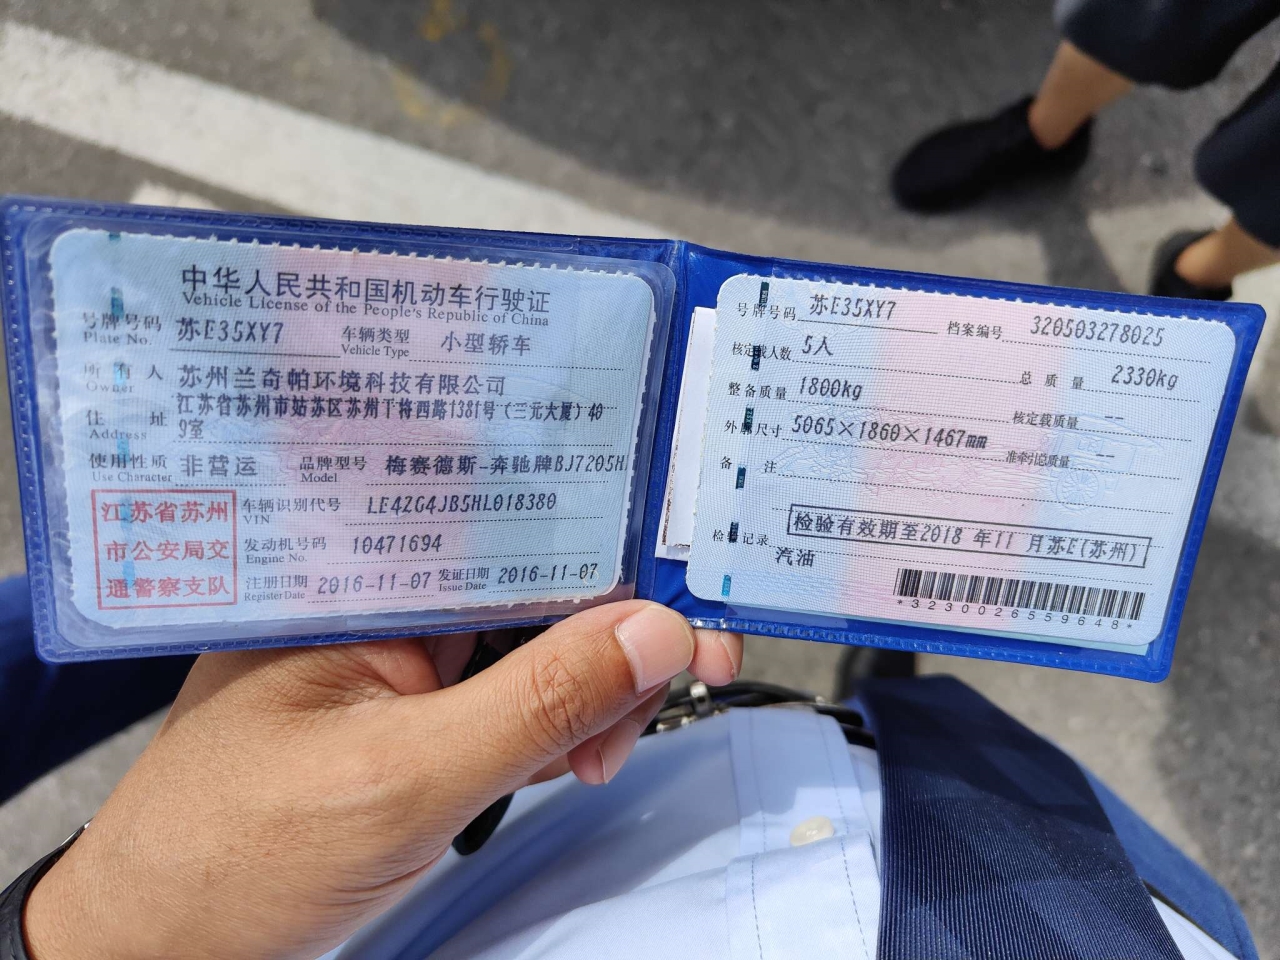 中华人民共和国机动车行驶证
Vehicle License of the People's Republic of China
号牌号码 苏E35XY7 车辆类型 小型轿车
Plate No. Vehicle Type
所有人 苏州兰奇帕环境科技有限公司
Owner
住址 江苏省苏州市姑苏区苏州干将西路1381号（三元大厦）40
Address 9室
使用性质 非营运 品牌型号 梅赛德斯-奔驰牌BJ7205H
Use Character Model
江苏省苏州
市公安局交
通警察支队
车辆识别代号 LE4ZG4JB5HL018380
VIN
发动机号码 10471694
Engine No.
注册日期 2016-11-07 发证日期 2016-11-07
Register Date Issue Date
号牌号码 苏E35XY7 档案编号 320503278025
核定载人数 5人 总质量 2330kg
整备质量 1800kg 核定载质量 --
外廓尺寸 5065×1860×1467mm 准牵引总质量 --
备注
检验有效期至2018 年11 月苏E(苏州)
检验记录
汽油
*3230026559648*